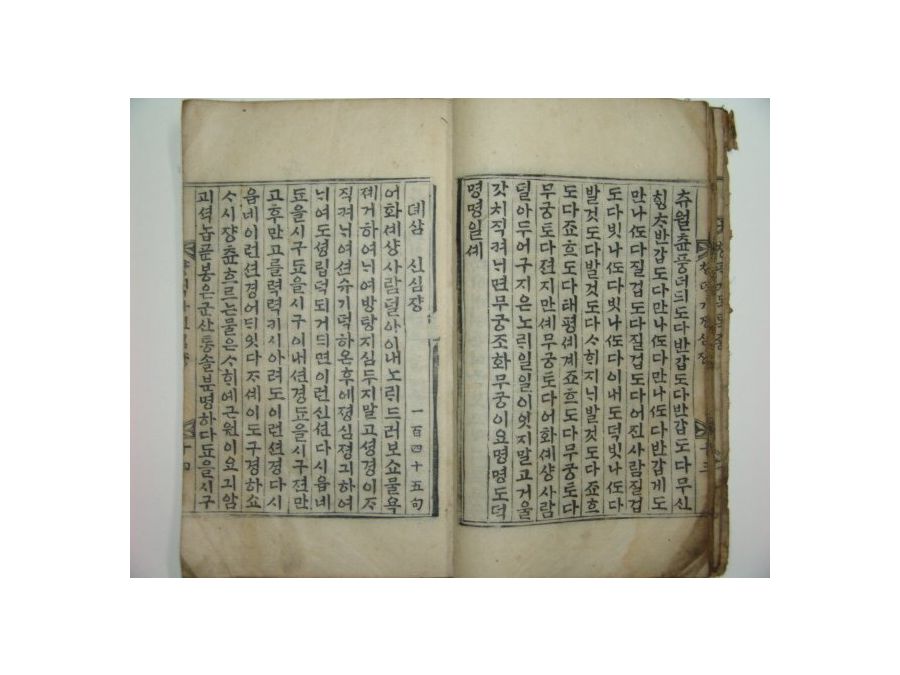 츄월츈풍너희도다반갑도다반갑도다무신
힝ᄎᆞ반갑도다만나ᄯᅩ다만나ᄯᅩ다반갑게도
만나ᄯᅩ다질겁도다질겁도다어진사람질겁
도다빗나ᄯᅩ다빗나ᄯᅩ다이내도덕빗나ᄯᅩ다
발것도다발것도다ᄉᆞ희지ᄂᆡ발것도다죠흐
도다죠흐도다태평셰계죠흐도다무궁토다
무궁토다젼지만셰무궁토다어화셰샹사람
덜아두어구지은노ᄅᆡ일일이잇지말고거울
갓치직켜ᄂᆡ면무궁조화무궁이요명명도덕
명명일셰
뎨삼 신심쟝 一百四十五句
어화셰샹사람덜아이내노ᄅᆡ드러보쇼물욕
졔거하여ᄂᆡ여방탕지심두지말고셩경이ᄌᆞ
직켜ᄂᆡ여션슈기덕하온후에졍심졍긔하여
ᄂᆡ여도셩립덕되거듸면이런신션다시읍네
됴을시구됴을시구이내션경됴을시구젼만
고후만고를력력키시아려도이런션경다시
읍네이런션경어듸잇다ᄌᆞ셰이도구경하쇼
ᄉᆞ시쟝츈흐르는물은ᄉᆞ희에근원이요긔암
괴셕놉푼봉은군산통솔분명하다됴을시구